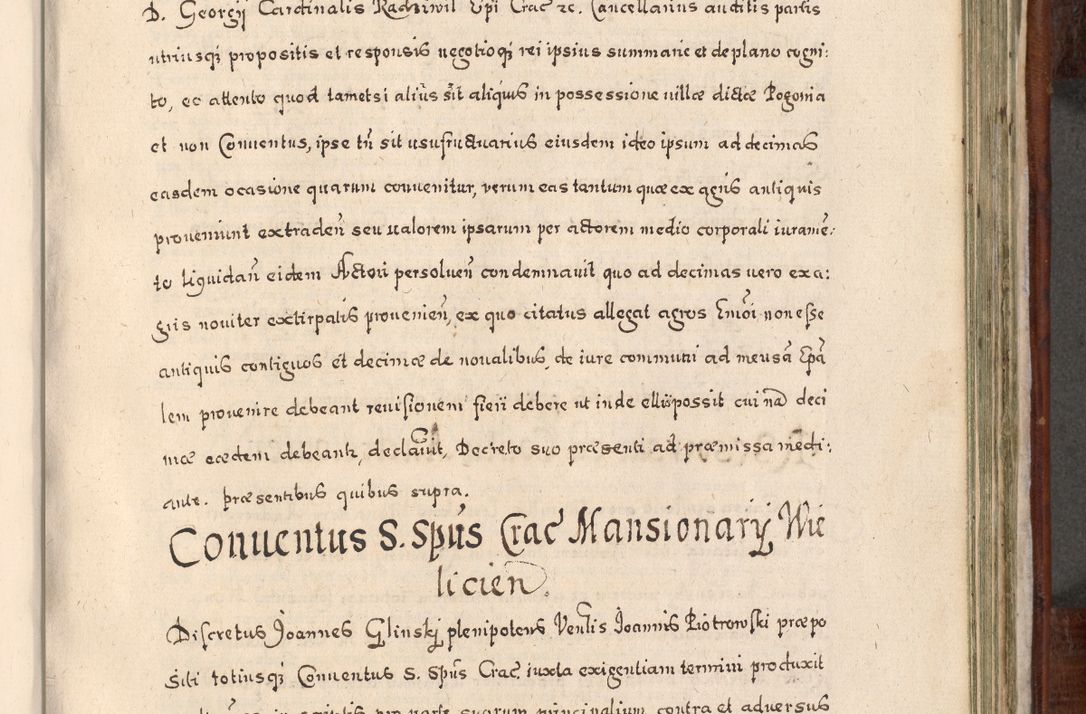 D. Georgij Cardinalis Radziwil Epi Crac̃ ꝛc. Cancellarius auditis partis
utriusqȝ propositis et responsis negotioqȝ rei ipsius summarie et de plano cogni:
to, ec attento quod tametsi alius sit aliquis in possessione villæ dictæ Pogonia
et non Conuentus, ipse tñ sit usufructuarius eiusdem ideo ipsum ad decimas
easdem ocasione quarum conuenitur, verum eas tantum quæ ex agris antiquis
proueniunt extradeñ seu valorem ipsarum per actorem medio corporali iurame:
to liquidañ eidem Actori persolueñ condemnauit quo ad decimas vero ex a:
gris nouiter extirpatis prouenieñ, ex quo citatus allegat agros non esse
antiquis contiguos et decimæ de noualibus de iure communi ad mensã Epã
lem prouenire debeant reuisionem fieri debere ut inde possit cui deci
mæ eædem debeant, declauit, Decreto suo præsenti ad præmissa medi:
ante. præsentibus quibus supra.
Conuentus S. Spũs Crac̃ Mansionarij Wie
licień.
Discretus Joannes Glinskj plenipotens Venlis Joannis Piotrowski præpo
siti totiusqȝ Conuentus S. Spũs Crac̃ iuxta exigentiam termini produxit
in pro parte suorum principalium contra et aduersus